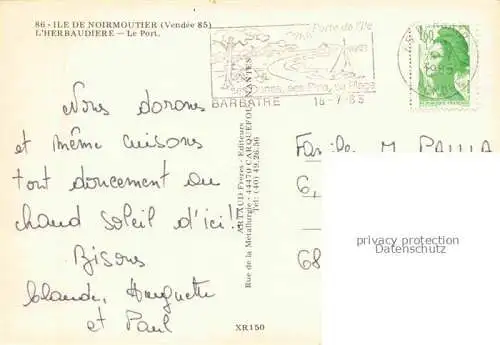 86 - ILE DE NOIRMOUTIER (Vendée 85)
L'HERBAUDIERE — Le Port.
Porte de l'Ile
ses Pins, sa Plage
BARBATRE 16-7-85
1,60
REPUBLIQUE FRANÇAISE
Nous dorons
et même cuisons
tout doucement au
chaud soleil d'ici!!
Bisons
Claude, Huguette
et Paul
ARTAUD Frères - Editeurs
Rue de la Métallurgie - 44470 CARQUEFOU-NANTES
Tél: (40) 49.26.56
XR150
M
6,
68
privacy protection
Datenschutz